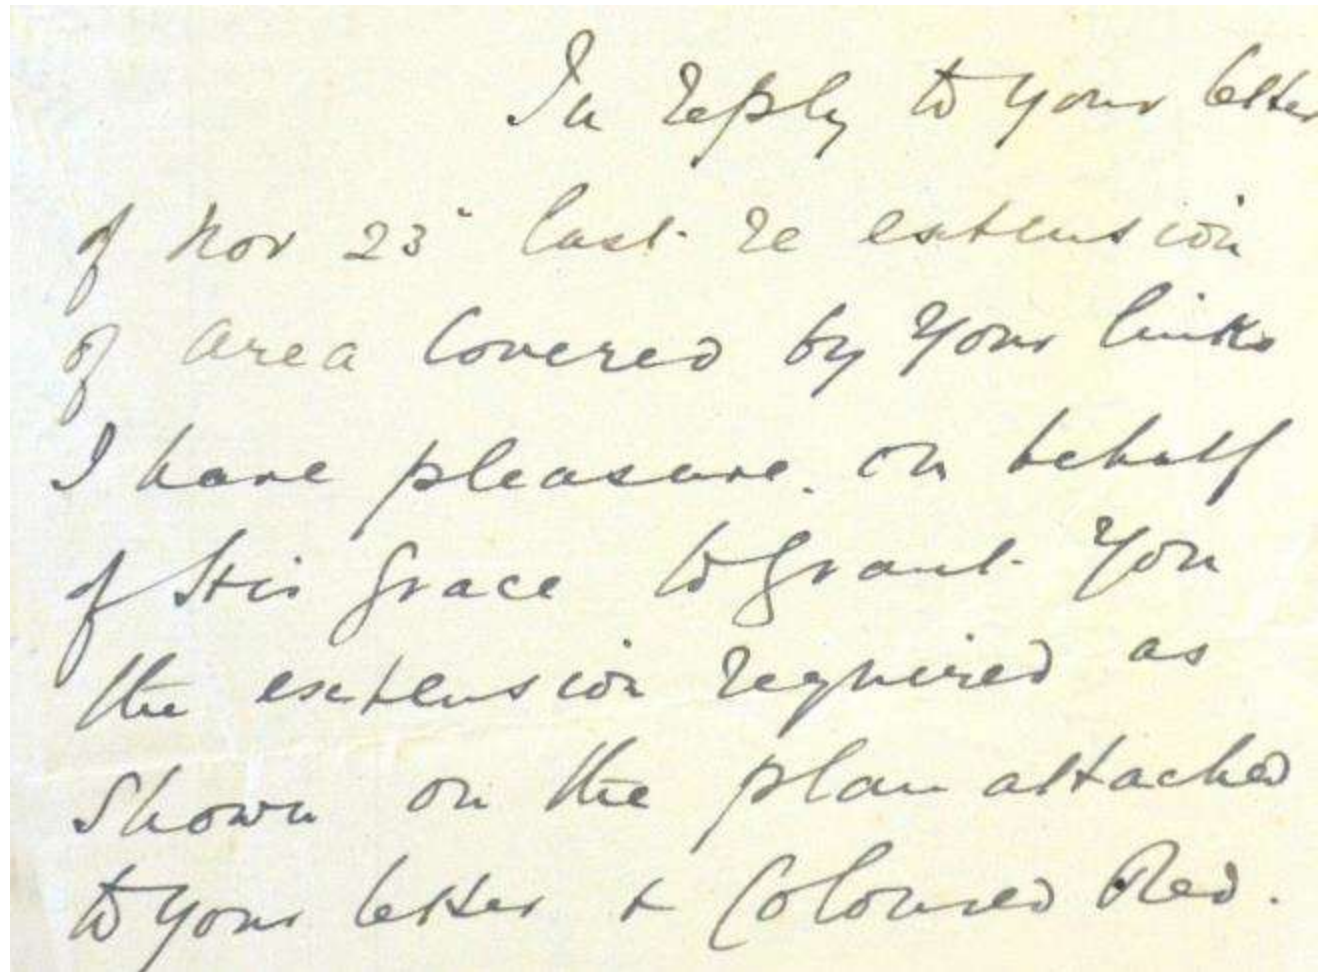 In reply to your letter
of Nov 23 last re extension
of area covered by your links
I have pleasure. on behalf
of His Grace to grant you
the extension required as
shown on the plan attached
to your letter & Coloured Red.